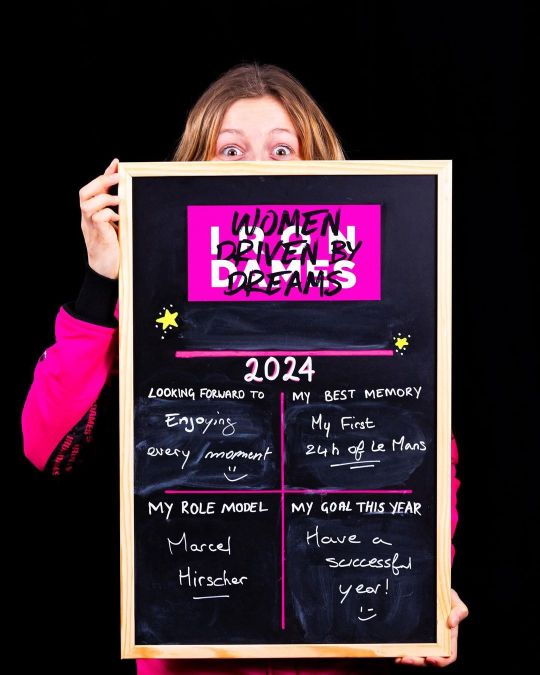 WOMEN
DRIVEN BY
DREAMS
IRON
DAMES
2024
LOOKING FORWARD TO
Enjoying
every moment
MY BEST MEMORY
My First
24h of Le Mans
MY ROLE MODEL
Marcel
Hirscher
MY GOAL THIS YEAR
Have a
successful
year!